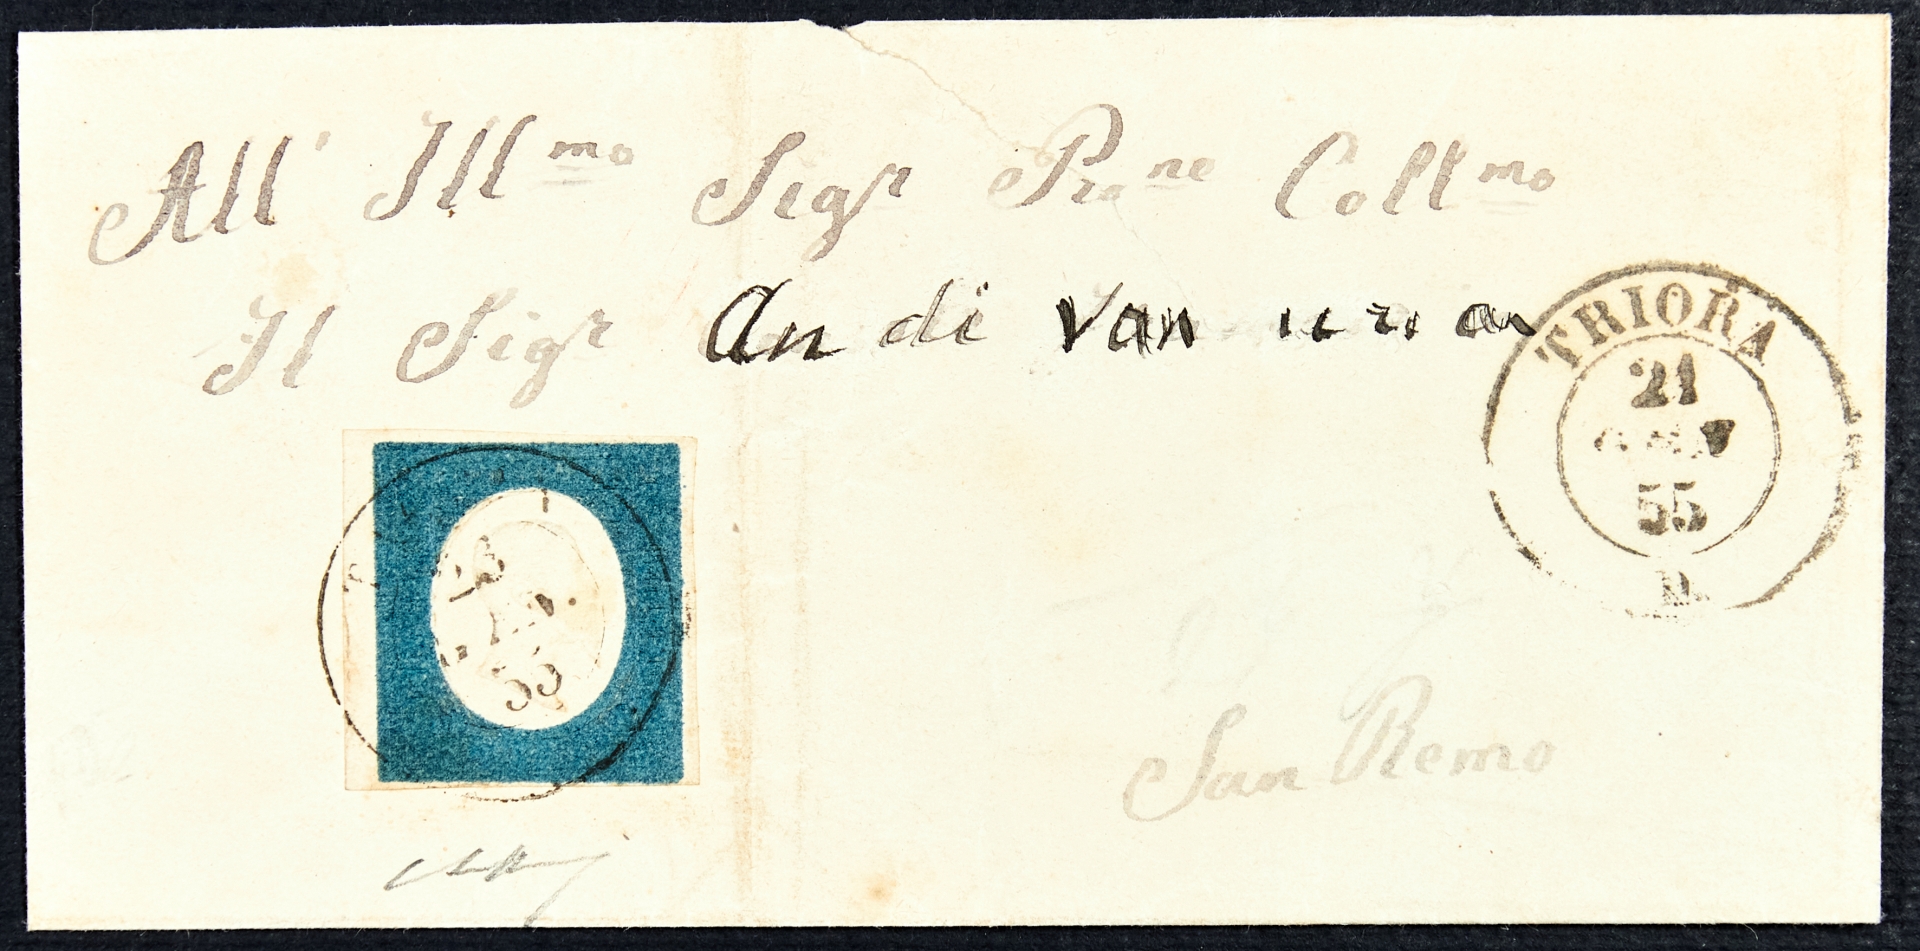 All' Ill.mo Sigr Pro.ne Coll.mo
Il Sigr An di Van
TRIORA
21
55
D.
55
San Remo